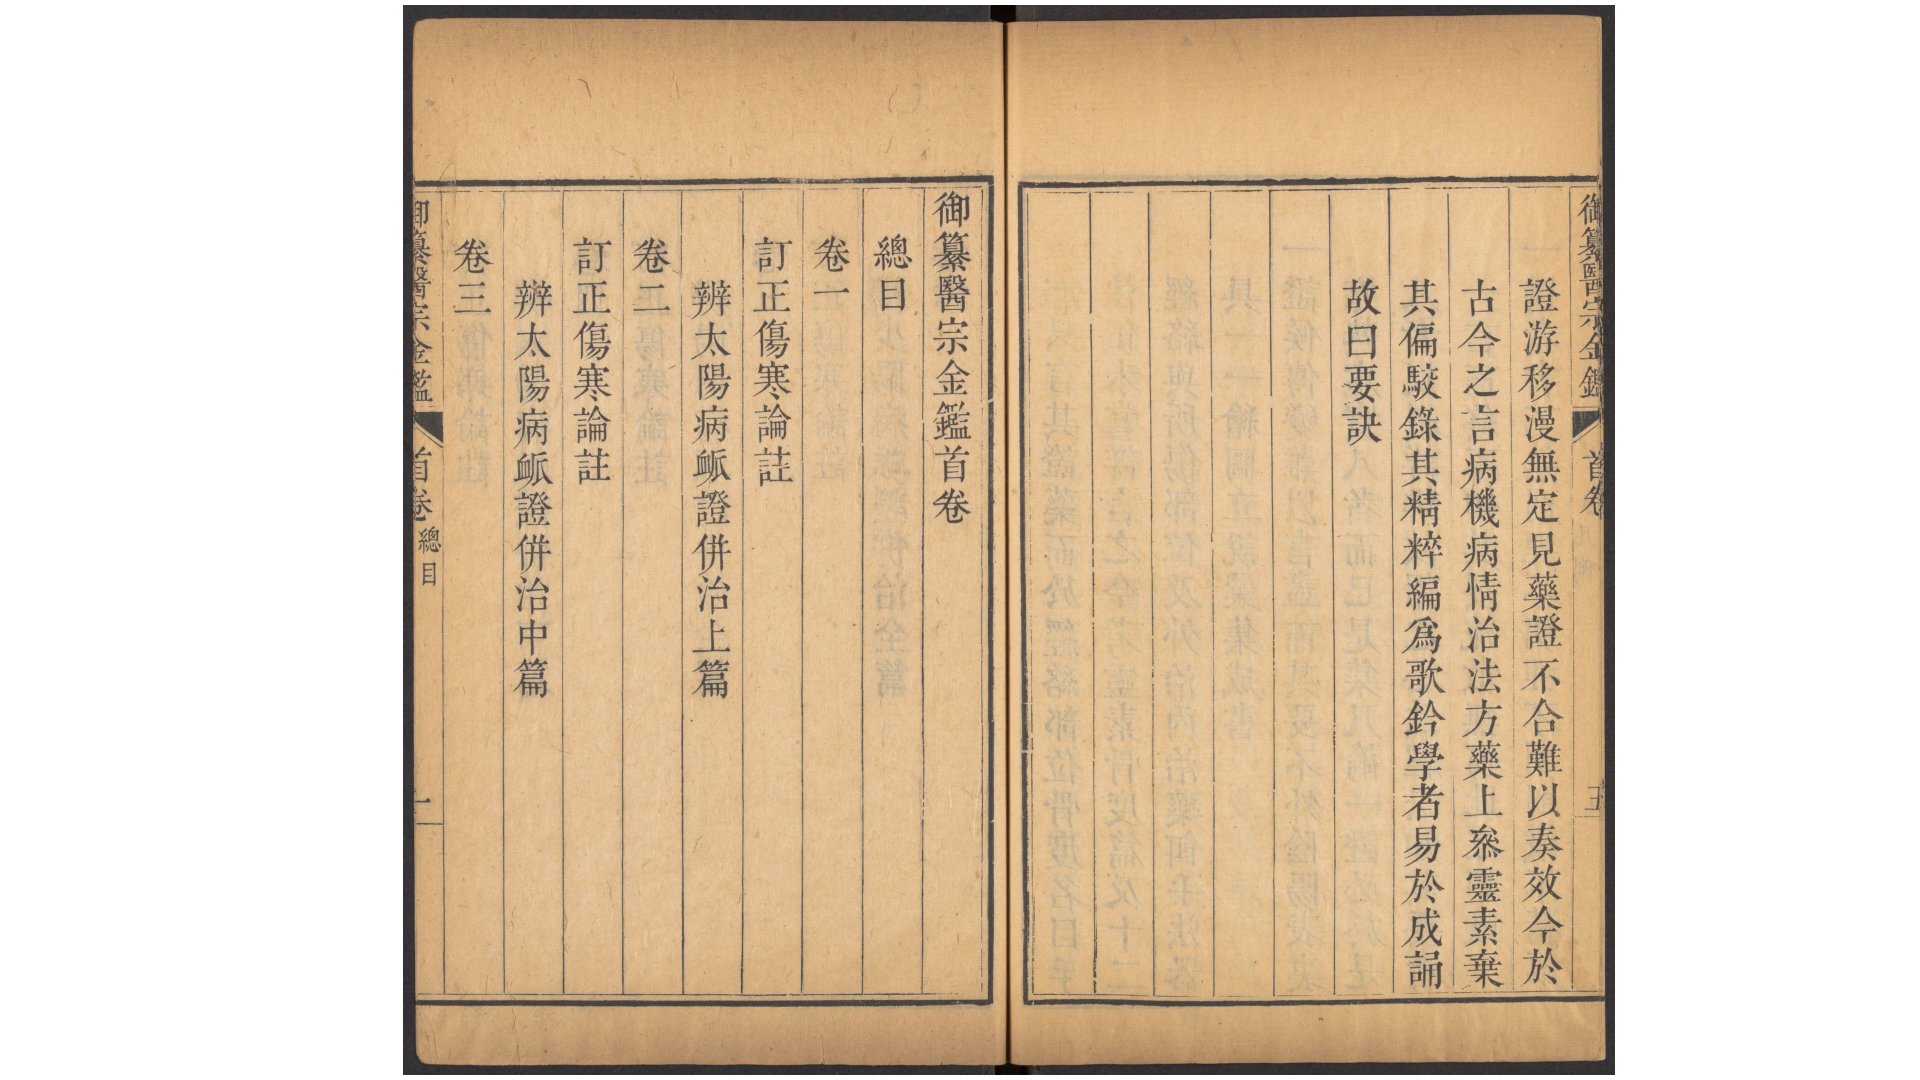 御纂醫宗金鑑 首卷 五
證游移漫無定見藥證不合難以奏效今於
古今之言病機病情治法方藥上叅靈素棄
其偏駮錄其精粹編爲歌鈐學者易於成誦
故曰要訣
御纂醫宗金鑑首卷
總目
卷一
訂正傷寒論註
辨太陽病脈證併治上篇
卷二
訂正傷寒論註
辨太陽病脈證併治中篇
卷三
御纂醫宗金鑑 首卷 總目 一